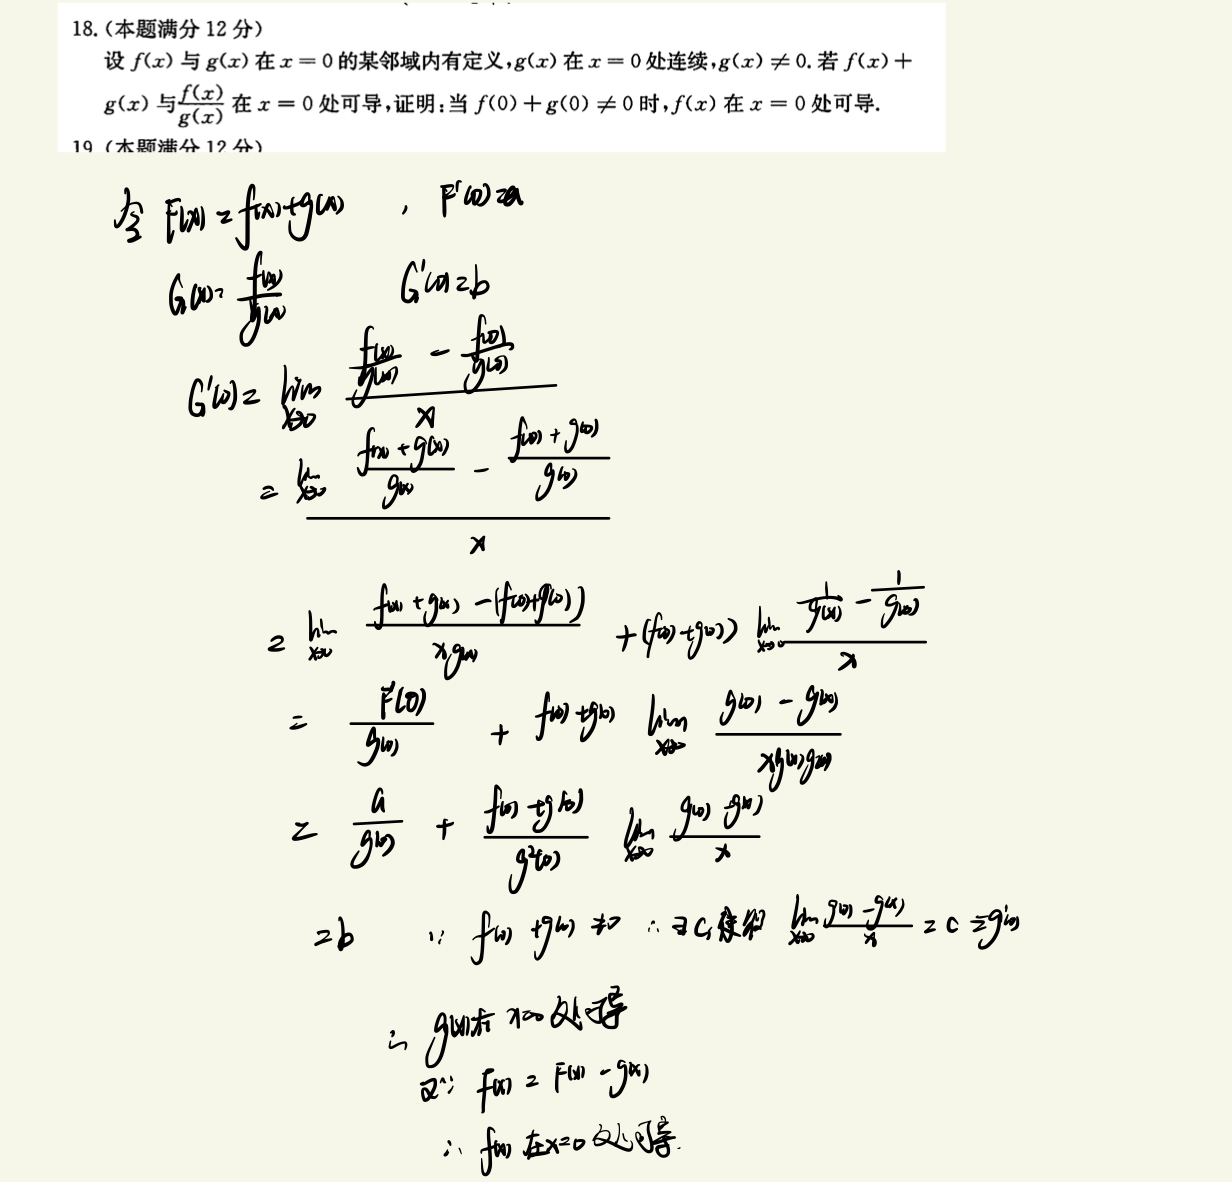 18. (本题满分 12 分)
设 f(x) 与 g(x) 在 x = 0 的某邻域内有定义,g(x) 在 x = 0 处连续,g(x) ≠ 0. 若 f(x) +
g(x) 与 f(x)/g(x) 在 x = 0 处可导,证明:当 f(0) + g(0) ≠ 0 时,f(x) 在 x = 0 处可导.
19. (本题满分 12 分)
令 F(x) = f(x)+g(x) , F'(0)=a
G(x) = f(x)/g(x) G'(0)=b
G'(0) = lim x→0 (f(x)/g(x) - f(0)/g(0))/x
= lim x→0 ((f(x)+g(x))/g(x) - (f(0)+g(0))/g(0))/x
= lim x→0 (f(x)+g(x) -(f(0)+g(0)))/(x g(x)) + (f(0)+g(0)) lim x→0 (1/g(x) - 1/g(0))/x
= F'(0)/g(0) + f(0)+g(0) lim x→0 (g(0) - g(x))/(x g(x) g(0))
= a/g(0) + (f(0)+g(0))/g²(0) lim x→0 (g(0) - g(x))/x
= b ∵ f(0)+g(0) ≠ 0 ∴ ∃ C, 使得 lim x→0 (g(0) - g(x))/x = C = g'(0)
∴ g(x)在 x=0 处可导
又∵ f(x) = F(x) - g(x)
∴ f(x) 在x=0 处可导.